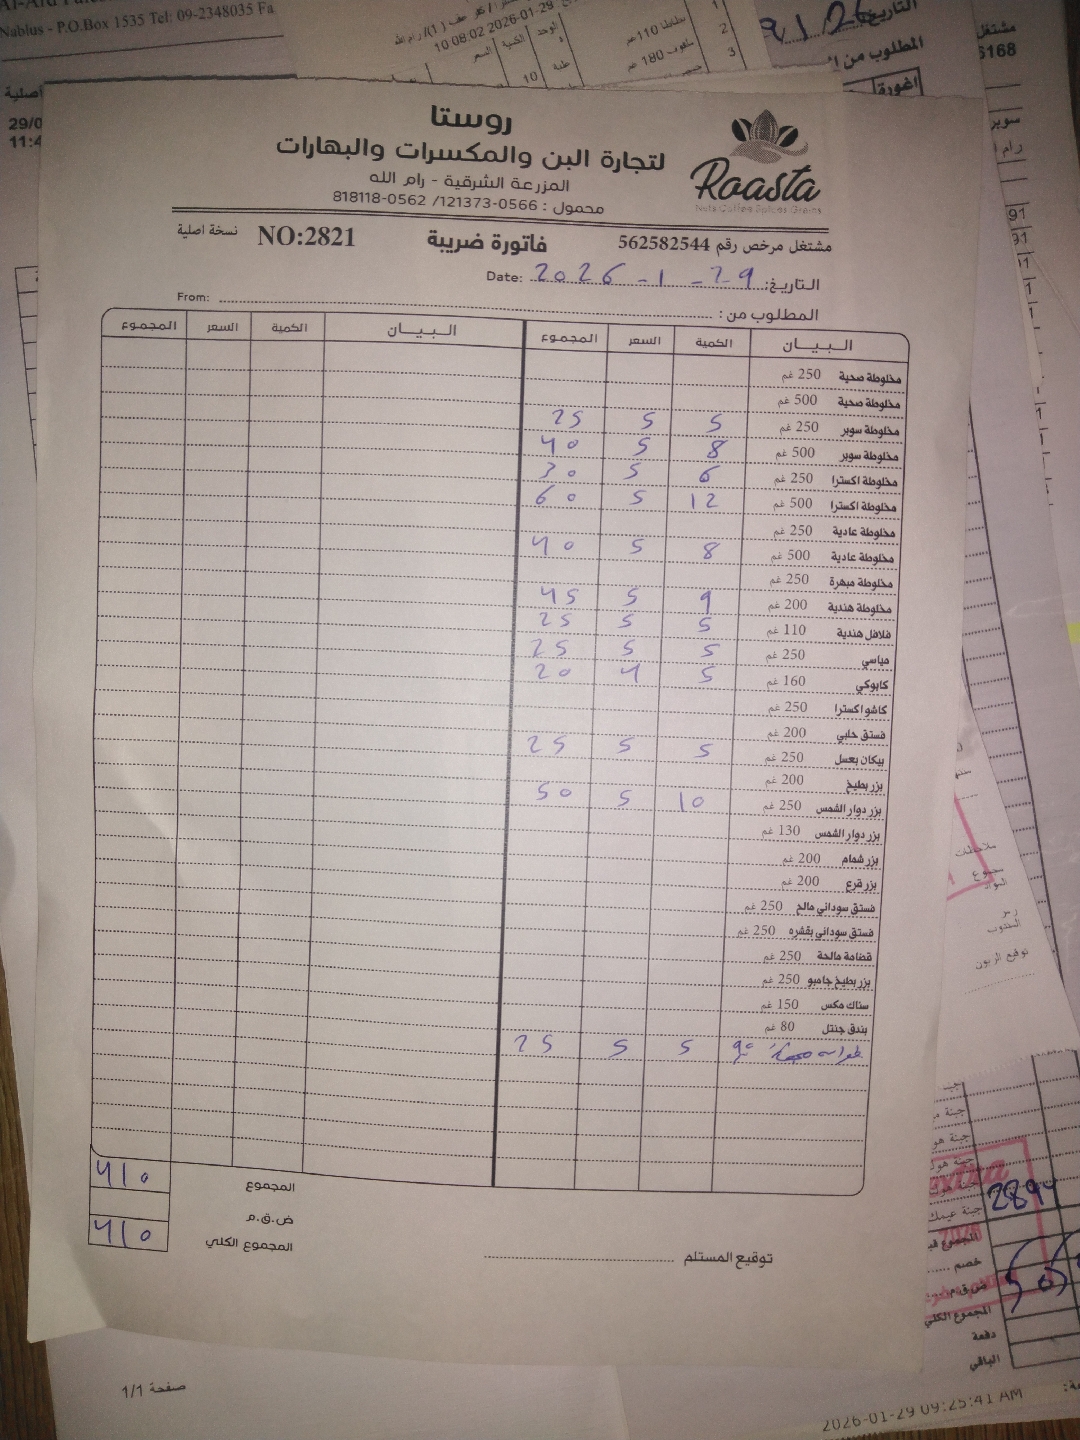 Nablus - P.O.Box 1535 Tel: 09-2348035 Fa
روستا
لتجارة البن والمكسرات والبهارات
المزرعة الشرقية - رام الله
محمول : 0566-121373/ 0562-818118
Roasta
Nuts Coffee Spices Grains
مشتغل مرخص رقم 562582544
فاتورة ضريبة
NO:2821
نسخة اصلية
التاريخ: 29-1-2026 Date:
المطلوب من : From:
البـيـــان الكمية السعر المجموع البـيـــان الكمية السعر المجموع
مخلوطة صحية 250 غم
مخلوطة صحية 500 غم
مخلوطة سوبر 250 غم 5 5 25
مخلوطة سوبر 500 غم 8 5 40
مخلوطة اكسترا 250 غم 6 5 30
مخلوطة اكسترا 500 غم 12 5 60
مخلوطة عادية 250 غم
مخلوطة عادية 500 غم 8 5 40
مخلوطة مبهرة 250 غم
مخلوطة هندية 200 غم 9 5 45
فلافل هندية 110 غم 5 5 25
مياسي 250 غم 5 5 25
كابوكي 160 غم 5 4 20
كاشو اكسترا 250 غم
فستق حلبي 200 غم
بيكان بعسل 250 غم 5 5 25
بزر بطيخ 200 غم
بزر دوار الشمس 250 غم 10 5 50
بزر دوار الشمس 130 غم
بزر شمام 200 غم
بزر قرع 200 غم
فستق سوداني مالح 250 غم
فستق سوداني بقشره 250 غم
قضامة مالحة 250 غم
بزر بطيخ جامبو 250 غم
سناك مكس 150 غم
بندق جنتل 80 غم
5 5 25
المجموع 410
ض.ق.م
المجموع الكلي 410
توقيع المستلم
صفحة 1/1
2894
المجموع الكلي
دفعة
الباقي
2026-01-29 09:25:41 AM